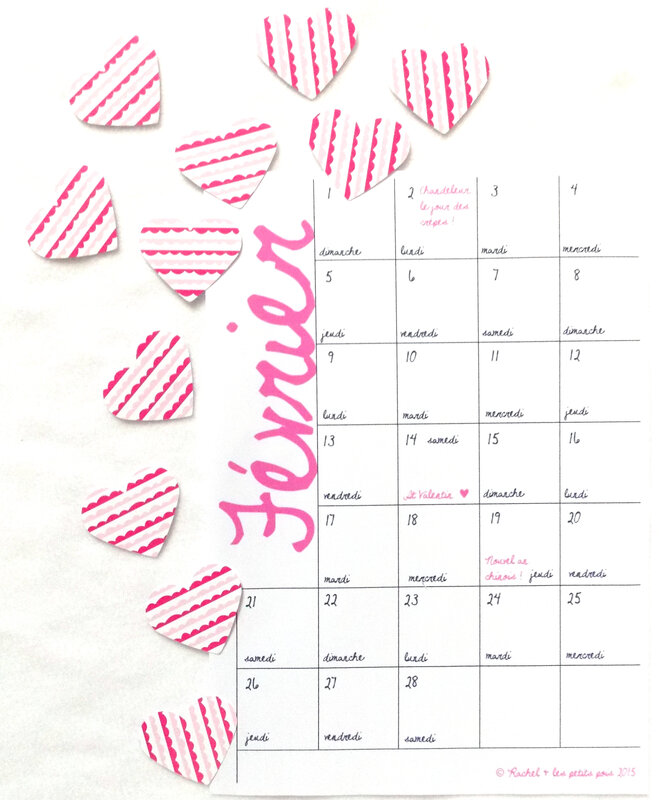 Février
1
dimanche
2 Chandeleur
le jour des
crêpes!
lundi
3
mardi
4
mercredi
5
jeudi
6
vendredi
7
samedi
8
dimanche
9
lundi
10
mardi
11
mercredi
12
jeudi
13
vendredi
14 samedi
St Valentin ♥
15
dimanche
16
lundi
17
mardi
18
mercredi
19
Nouvel an
chinois! jeudi
20
vendredi
21
samedi
22
dimanche
23
lundi
24
mardi
25
mercredi
26
jeudi
27
vendredi
28
samedi
© Rachel + les petits pois 2015